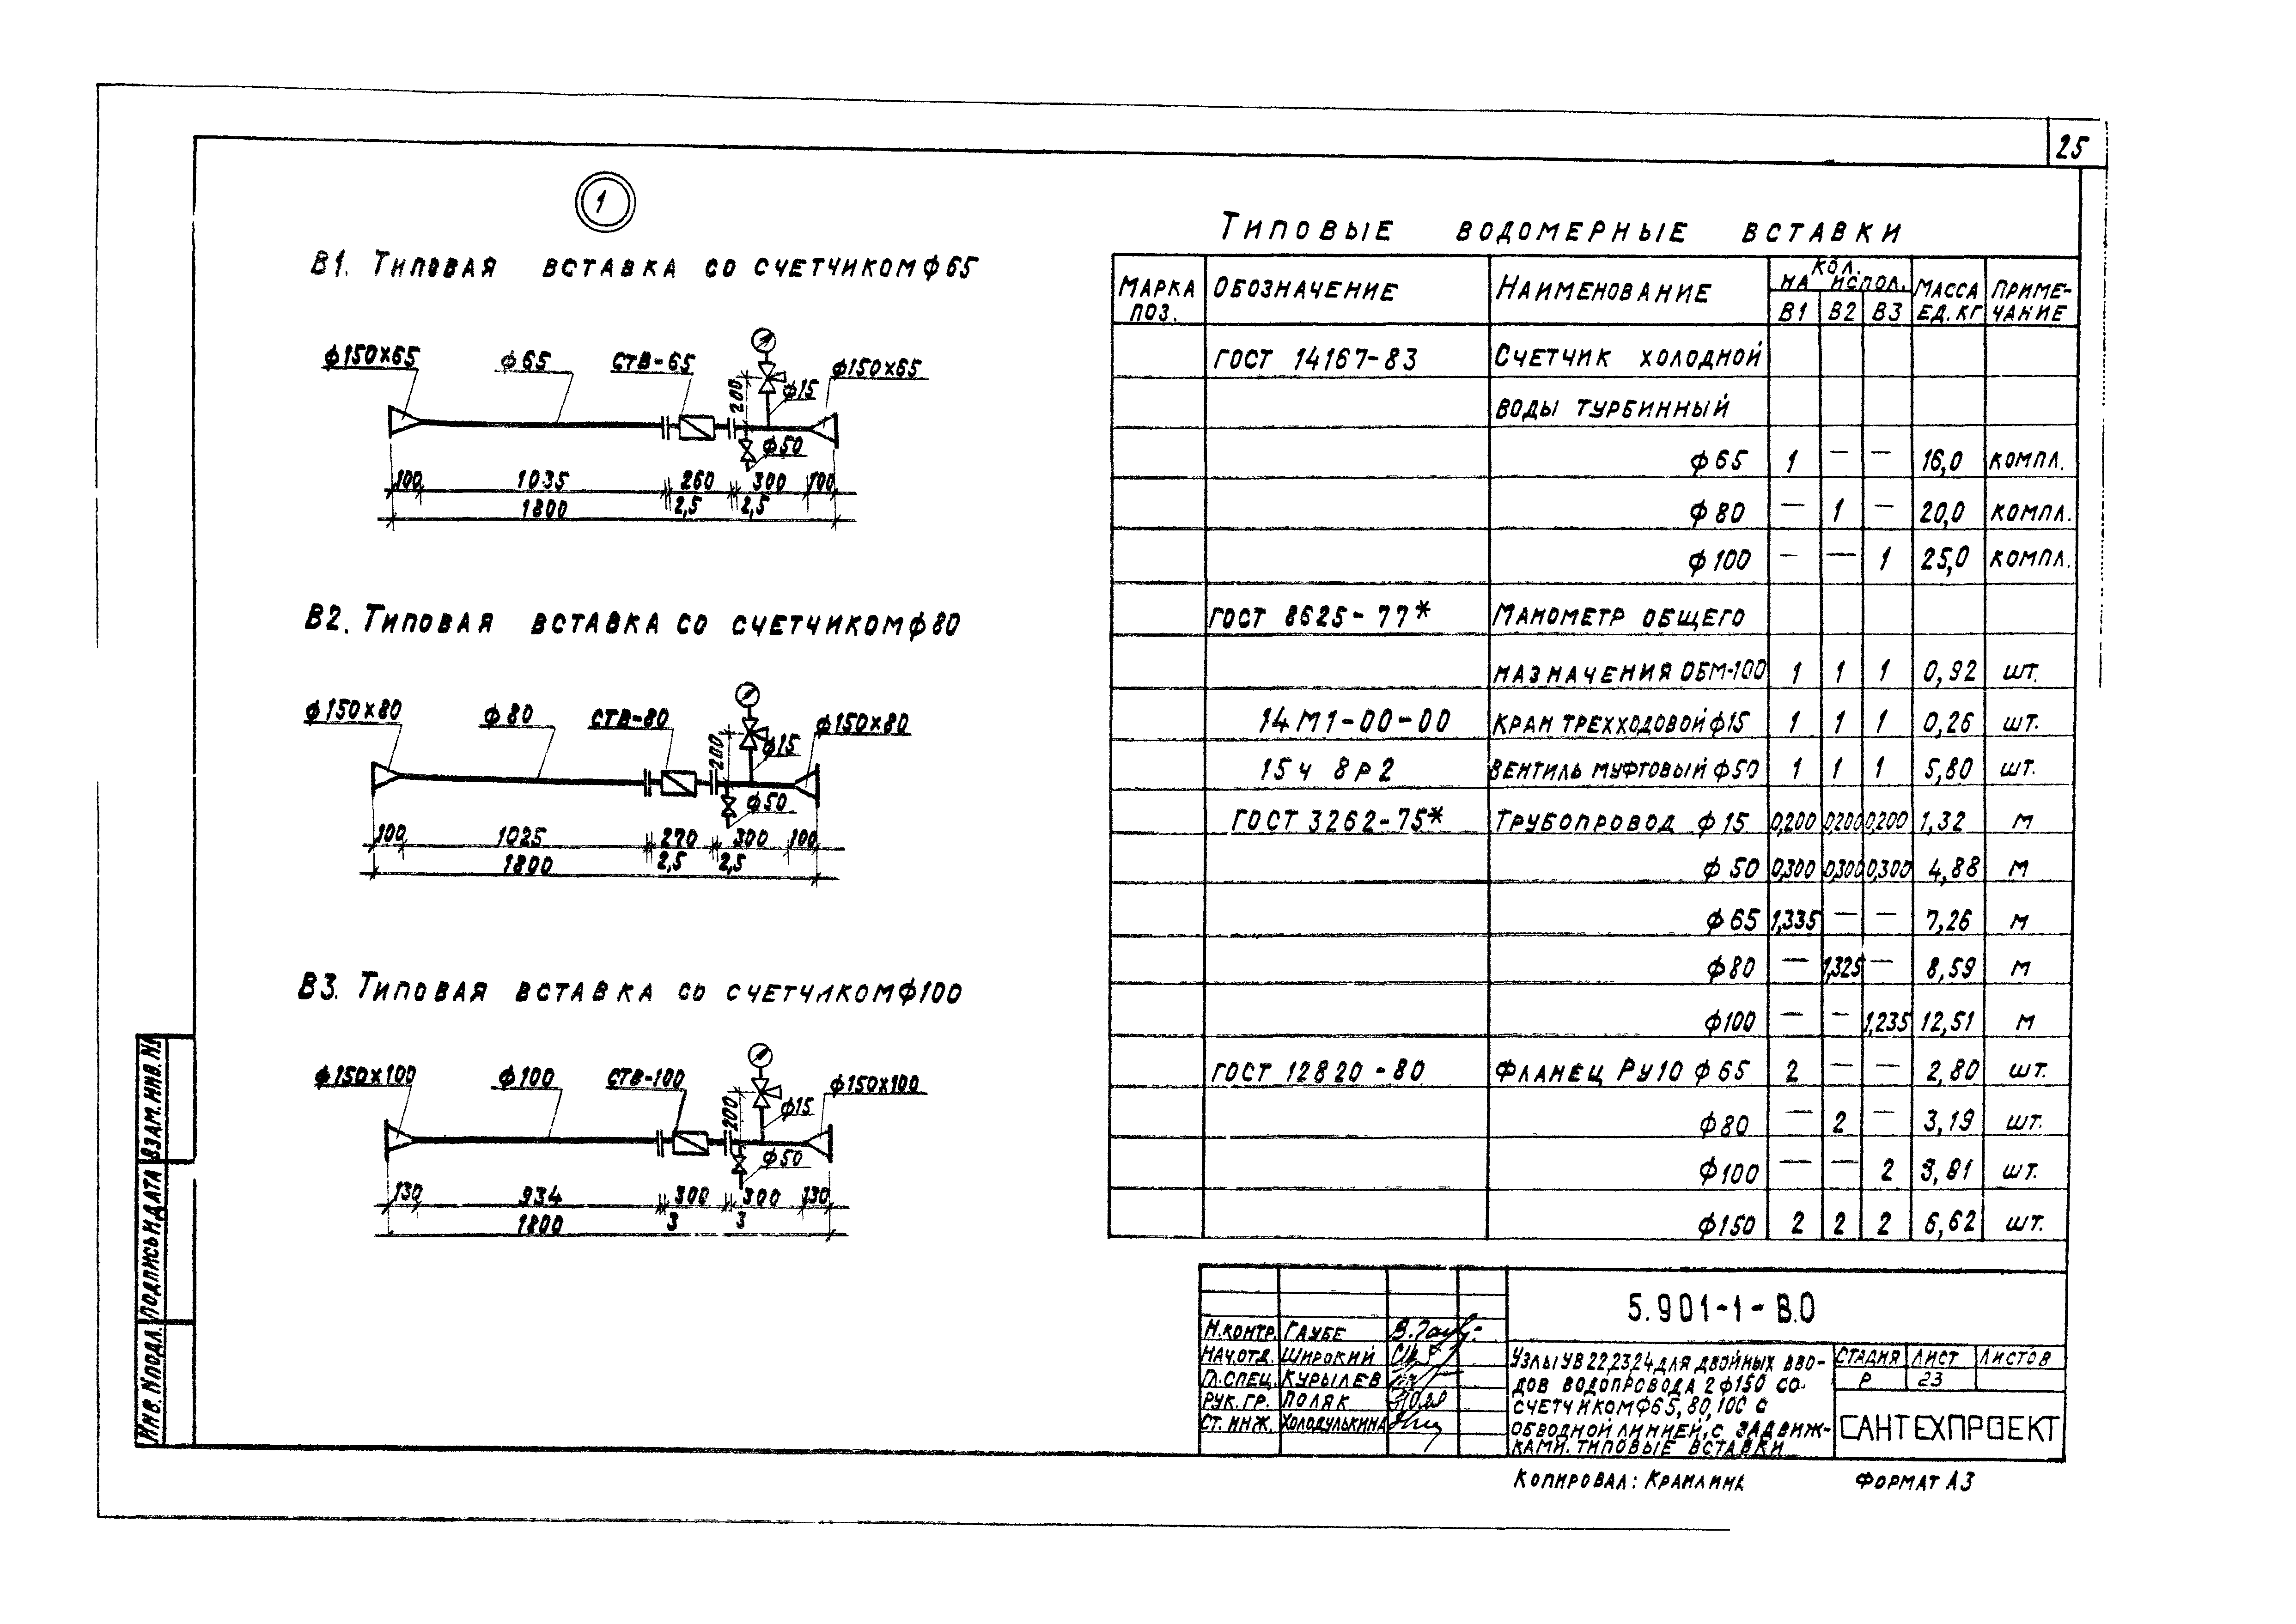 25
1
В1. Типовая вставка со счетчиком ф65
ф150×65
ф65
СТВ-65
ф150×65
200
ф15
ф50
100 1035 260 300 100
2,5 2,5
1800
В2. Типовая вставка со счетчиком ф80
ф150×80
ф80
СТВ-80
ф150×80
200
ф15
ф50
100 1025 270 300 100
2,5 2,5
1800
В3. Типовая вставка со счетчиком ф100
ф150×100
ф100
СТВ-100
ф150×100
200
ф15
ф50
130 934 300 300 130
3 3
1800
Типовые водомерные вставки
Марка поз. Обозначение Наименование Кол. на испол. Масса ед. кг Примечание
В1 В2 В3
ГОСТ 14167-83 Счетчик холодной
воды турбинный
ф65 1 — — 16,0 компл.
ф80 — 1 — 20,0 компл.
ф100 — — 1 25,0 компл.
ГОСТ 8625-77* Манометр общего
назначения ОБМ-100 1 1 1 0,92 шт.
14М1-00-00 Кран трехходовой ф15 1 1 1 0,26 шт.
15ч 8р2 Вентиль муфтовый ф50 1 1 1 5,80 шт.
ГОСТ 3262-75* Трубопровод ф15 0,200 0,200 0,200 1,32 м
ф50 0,300 0,300 0,300 4,88 м
ф65 1,335 — — 7,26 м
ф80 — 1,325 — 8,59 м
ф100 — — 1,235 12,51 м
ГОСТ 12820-80 Фланец Ру10 ф65 2 — — 2,80 шт.
ф80 — 2 — 3,19 шт.
ф100 — — 2 3,81 шт.
ф150 2 2 2 6,62 шт.
5.901-1-В.0
Н.контр. Гаубе
Нач.отд. Широкий
Гл.спец. Курылев
Рук.гр. Поляк
Ст. инж. Холодулькина
Узлы УВ 22,23,24 для двойных вво-
дов водопровода 2ф150 со
счетчиком ф65,80,100 с
обводной линией, с задвиж-
ками. Типовые вставки
Стадия Лист Листов
Р 23
САНТЕХПРОЕКТ
Копировал:
Формат А3
Взам. инв. №
Подпись и дата
Инв. N подл.